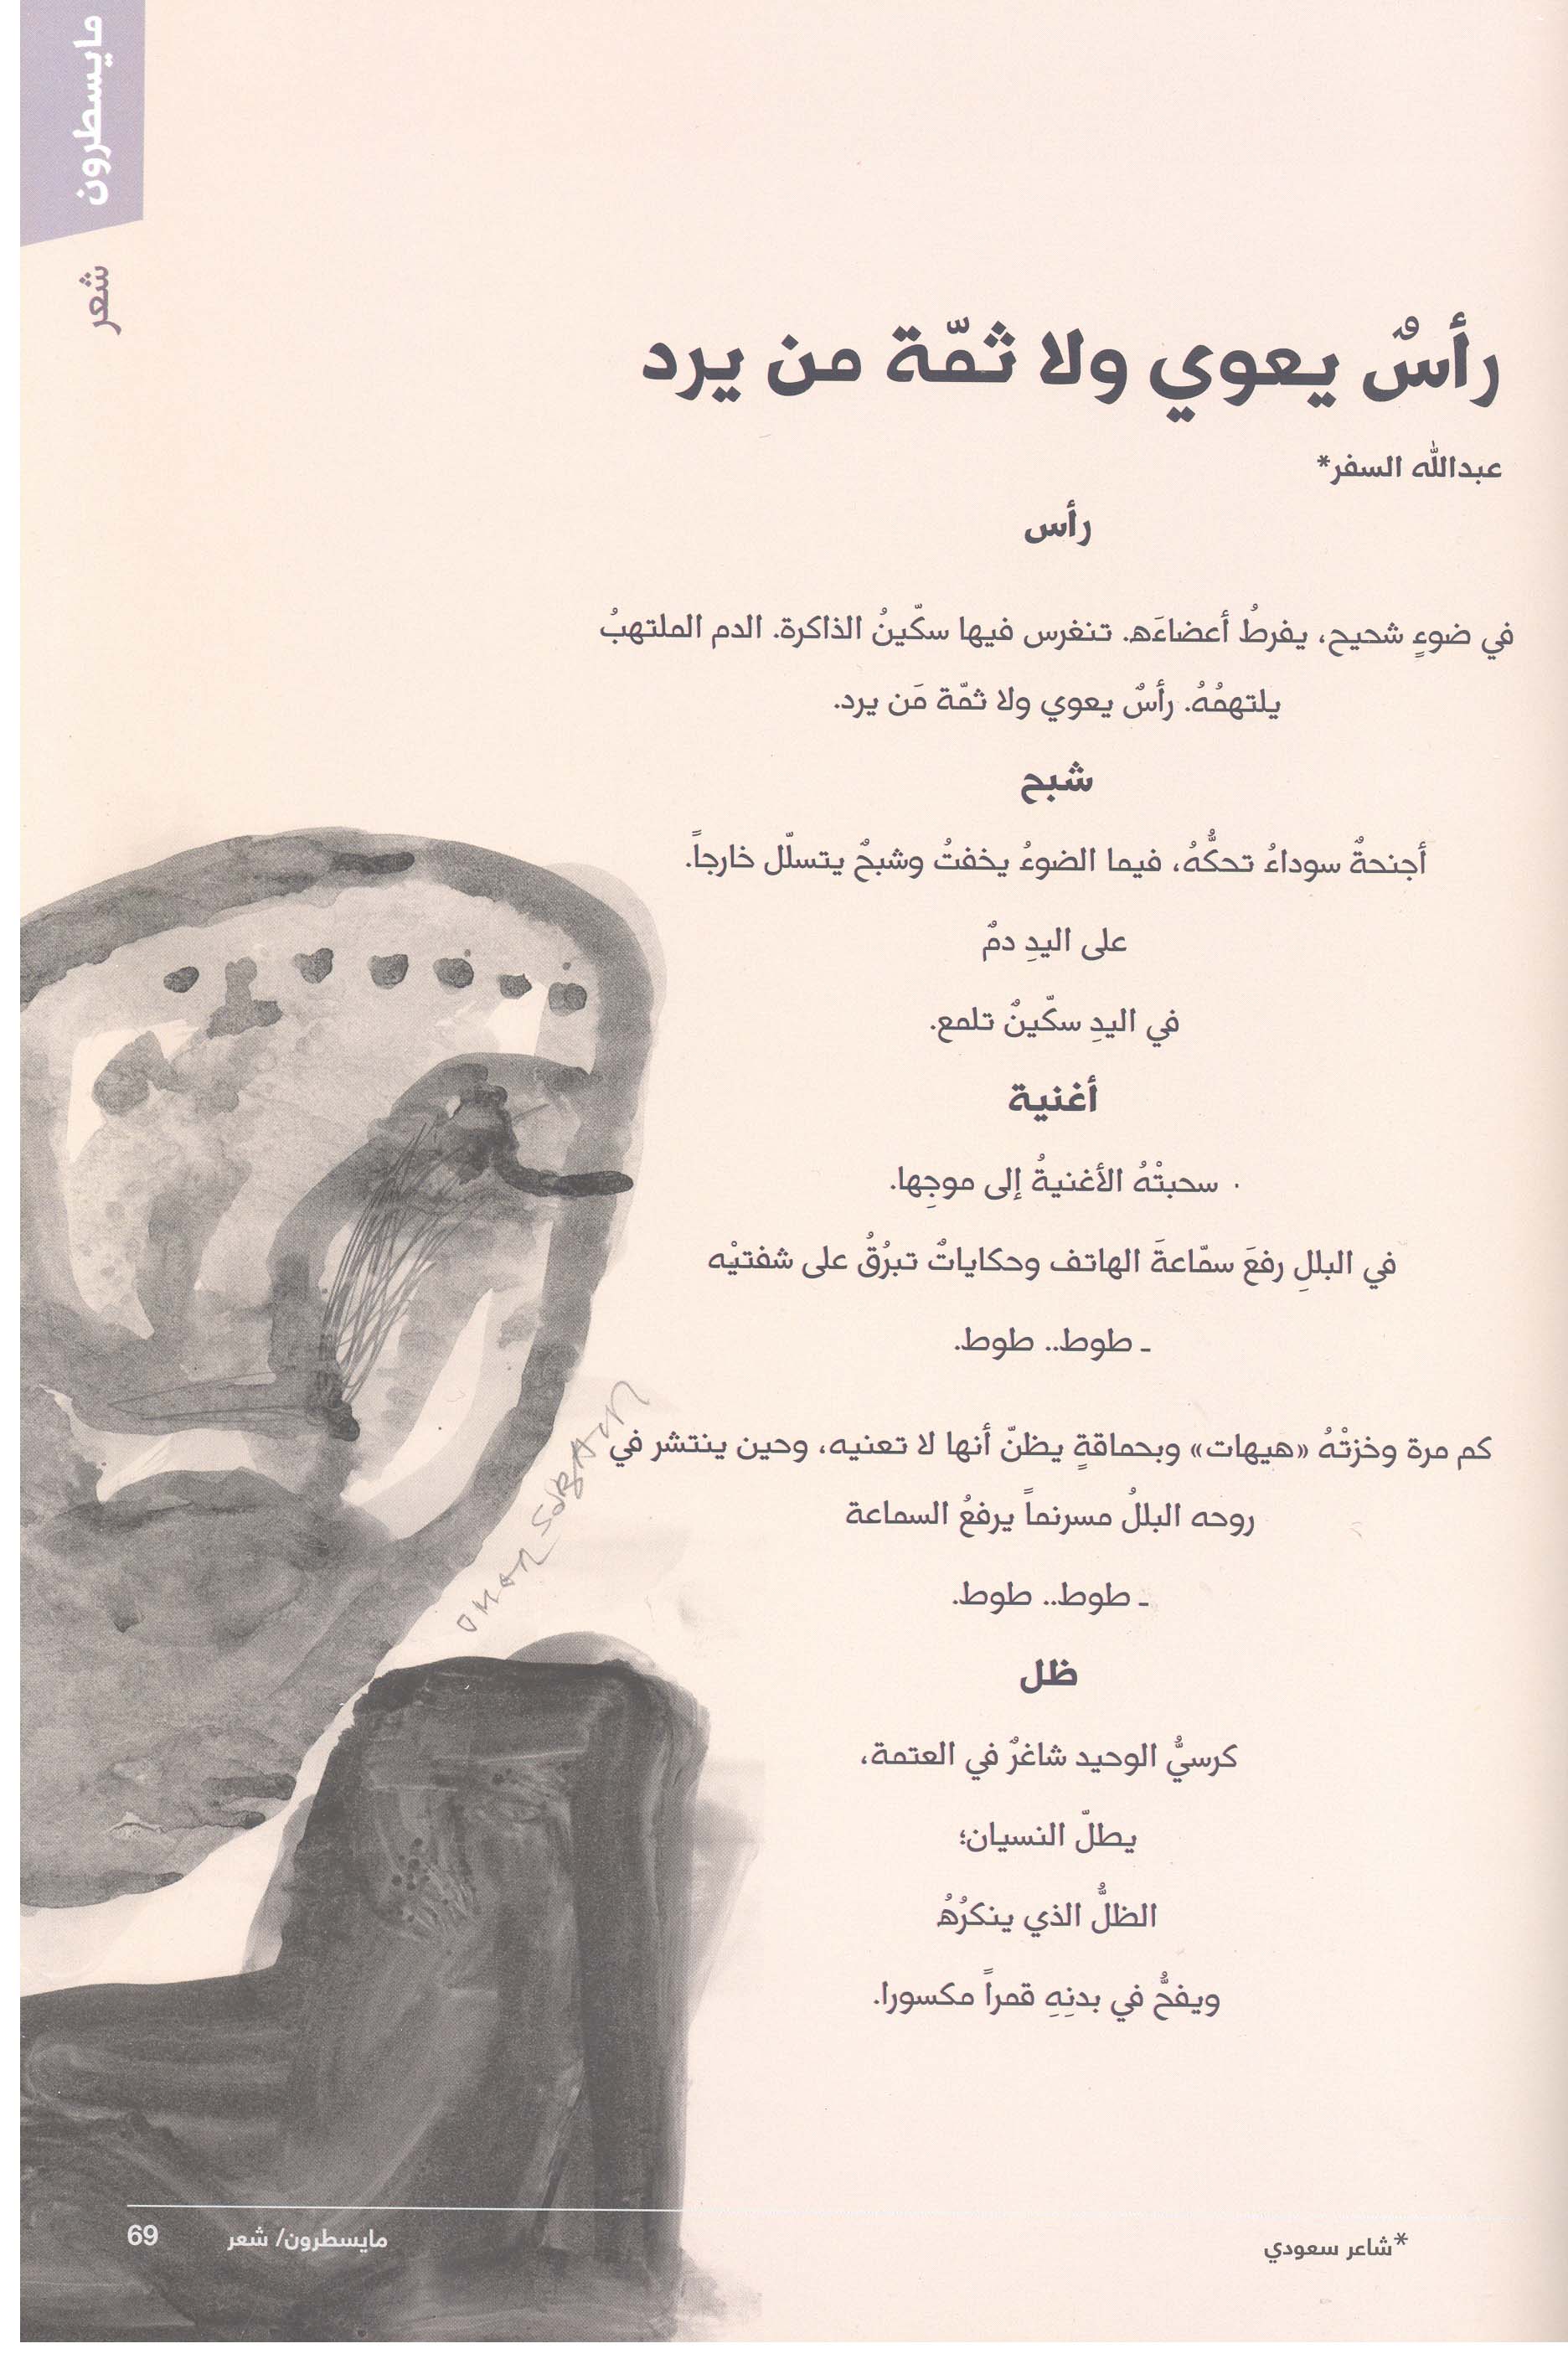 مايسطرون
شعر
رأسٌ يعوي ولا ثمّة من يرد
عبدالله السفر*
رأس
في ضوءٍ شحيح، يفرطُ أعضاءَه. تنغرس فيها سكّينُ الذاكرة. الدم الملتهبُ
يلتهمُهُ. رأسٌ يعوي ولا ثمّة مَن يرد.
شبح
أجنحةٌ سوداءُ تحكُّهُ، فيما الضوءُ يخفتُ وشبحٌ يتسلّل خارجاً.
على اليدِ دمٌ
في اليدِ سكّينٌ تلمع.
أغنية
سحبتْهُ الأغنيةُ إلى موجِها.
في البللِ رفعَ سمّاعةَ الهاتف وحكاياتٌ تبرُقُ على شفتيْه
ـ طوط.. طوط.
كم مرة وخزتْهُ «هيهات» وبحماقةٍ يظنّ أنها لا تعنيه، وحين ينتشر في
روحه البللُ مسرنماً يرفعُ السماعة
ـ طوط.. طوط.
ظل
كرسيُّ الوحيد شاغرٌ في العتمة،
يطلّ النسيان؛
الظلُّ الذي ينكرُهُ
ويفحُّ في بدنِهِ قمراً مكسورا.
OMAR SOBAHI
*شاعر سعودي
مايسطرون/ شعر
69